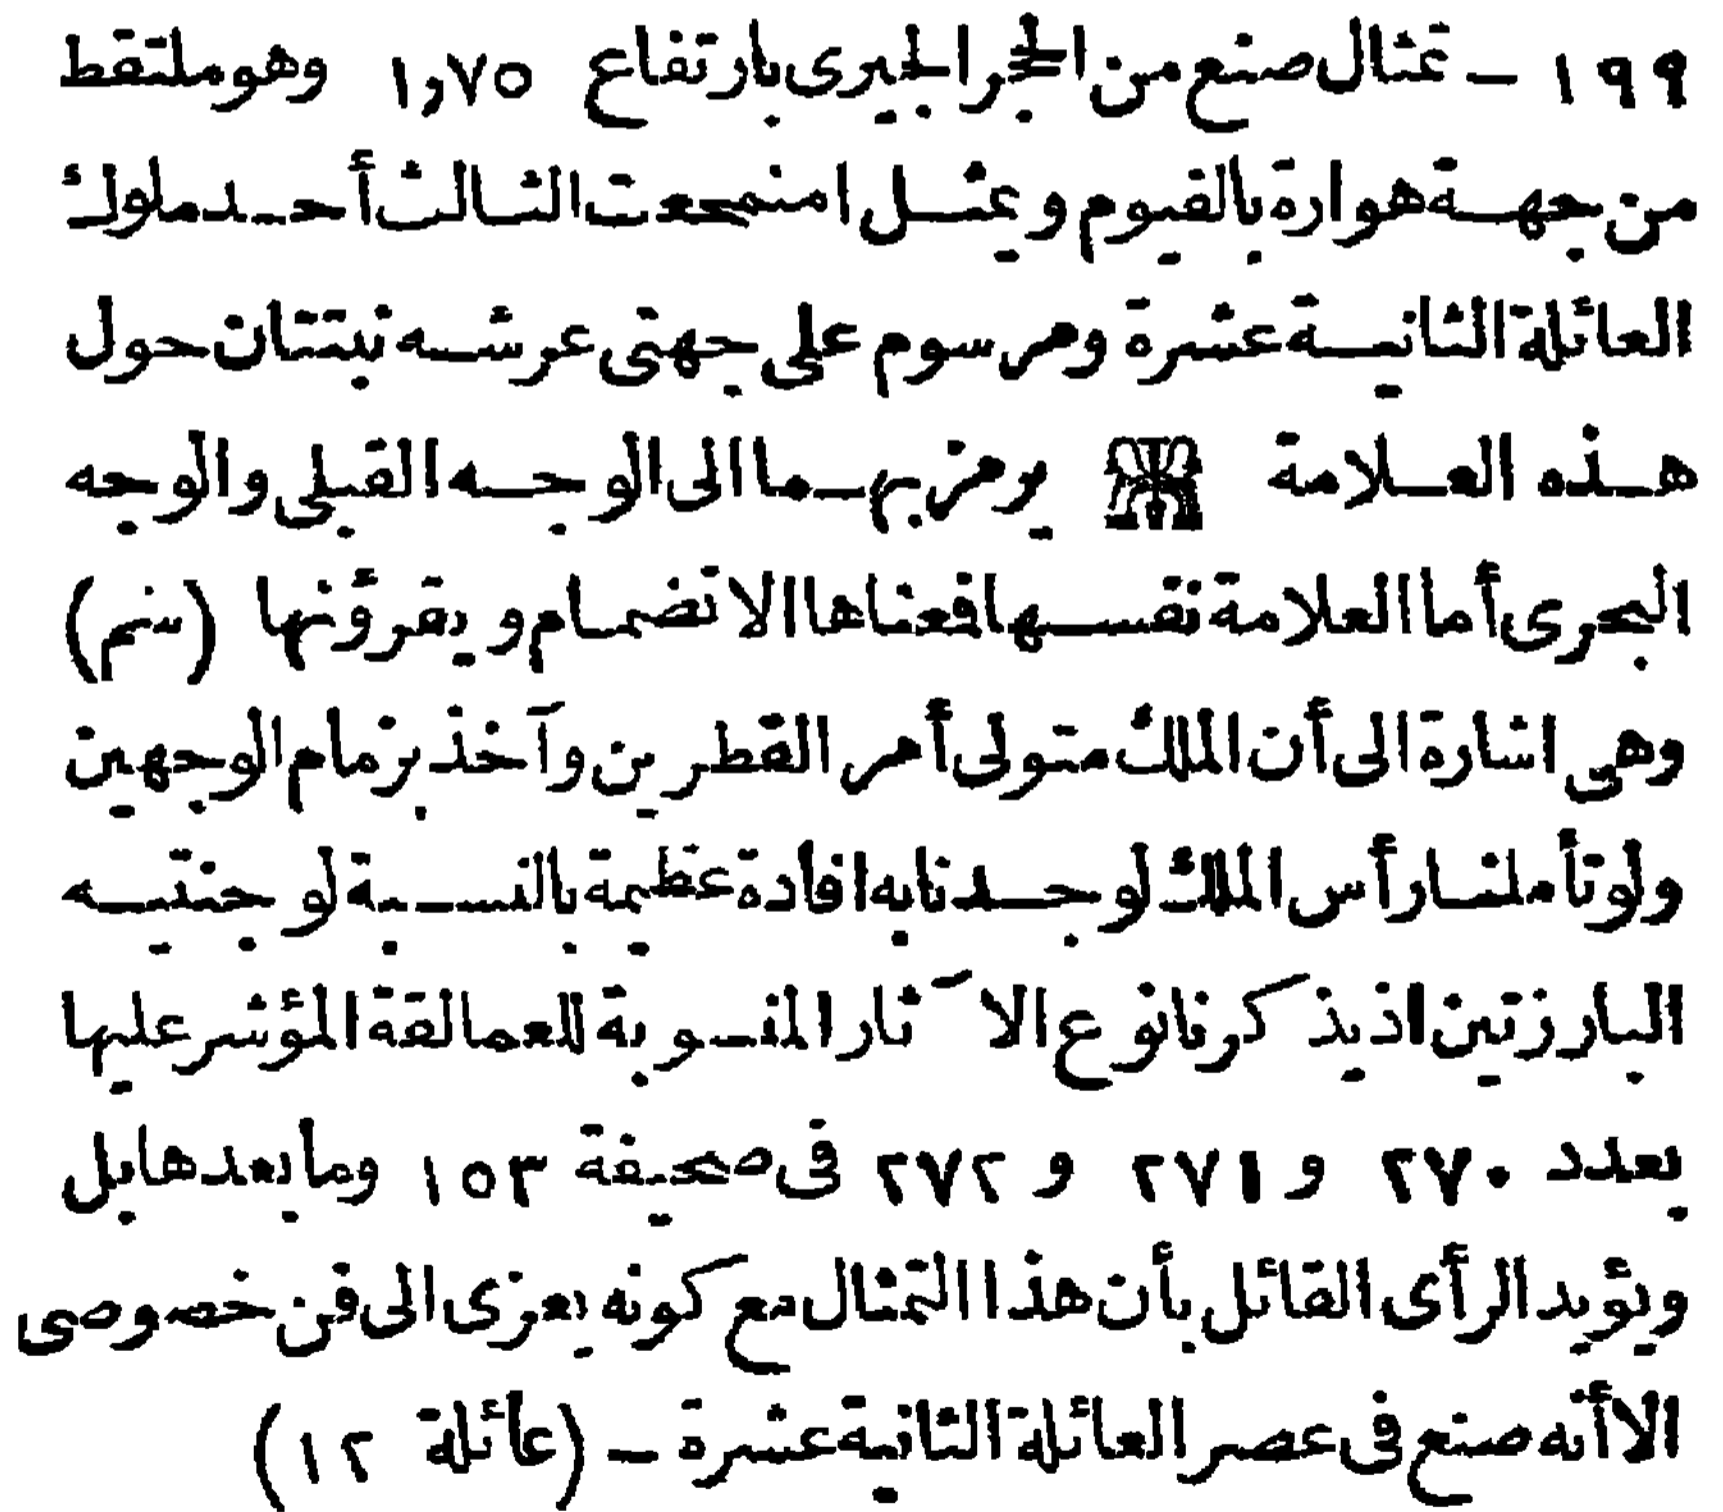 ١٩٩ – تمثال صنع من الحجر الجيرى بارتفاع ١٫٧٥ وهو ملتقط
من جهة هوارة بالفيوم ويمثل امنمحعت الثالث أحد ملوك
العائلة الثانية عشرة ومرسوم على جهتى عرشه نبتتان حول
هذه العلامة يرمز بهما الى الوجه القبلى والوجه
البحرى أما العلامة نفسها فمعناها الانضمام ويقرؤنها (سم)
وهى اشارة الى أن الملك متولى أمر القطرين وآخذ بزمام الوجهين
ولو تأملنا رأس الملك لوجدنا به افادة عظيمة بالنسبة لوجنتيه
البارزتين اذ يذكرنا نوع الآثار المنسوبة للعمالقة المؤشر عليها
بعدد ٢٧٠ و ٢٧١ و ٢٧٢ فى صحيفة ١٥٣ وما بعدها بل
ويؤيد الرأى القائل بأن هذا التمثال مع كونه يعزى الى فن خصوصى
الا أنه صنع فى عصر العائلة الثانية عشرة – (عائلة ١٢)